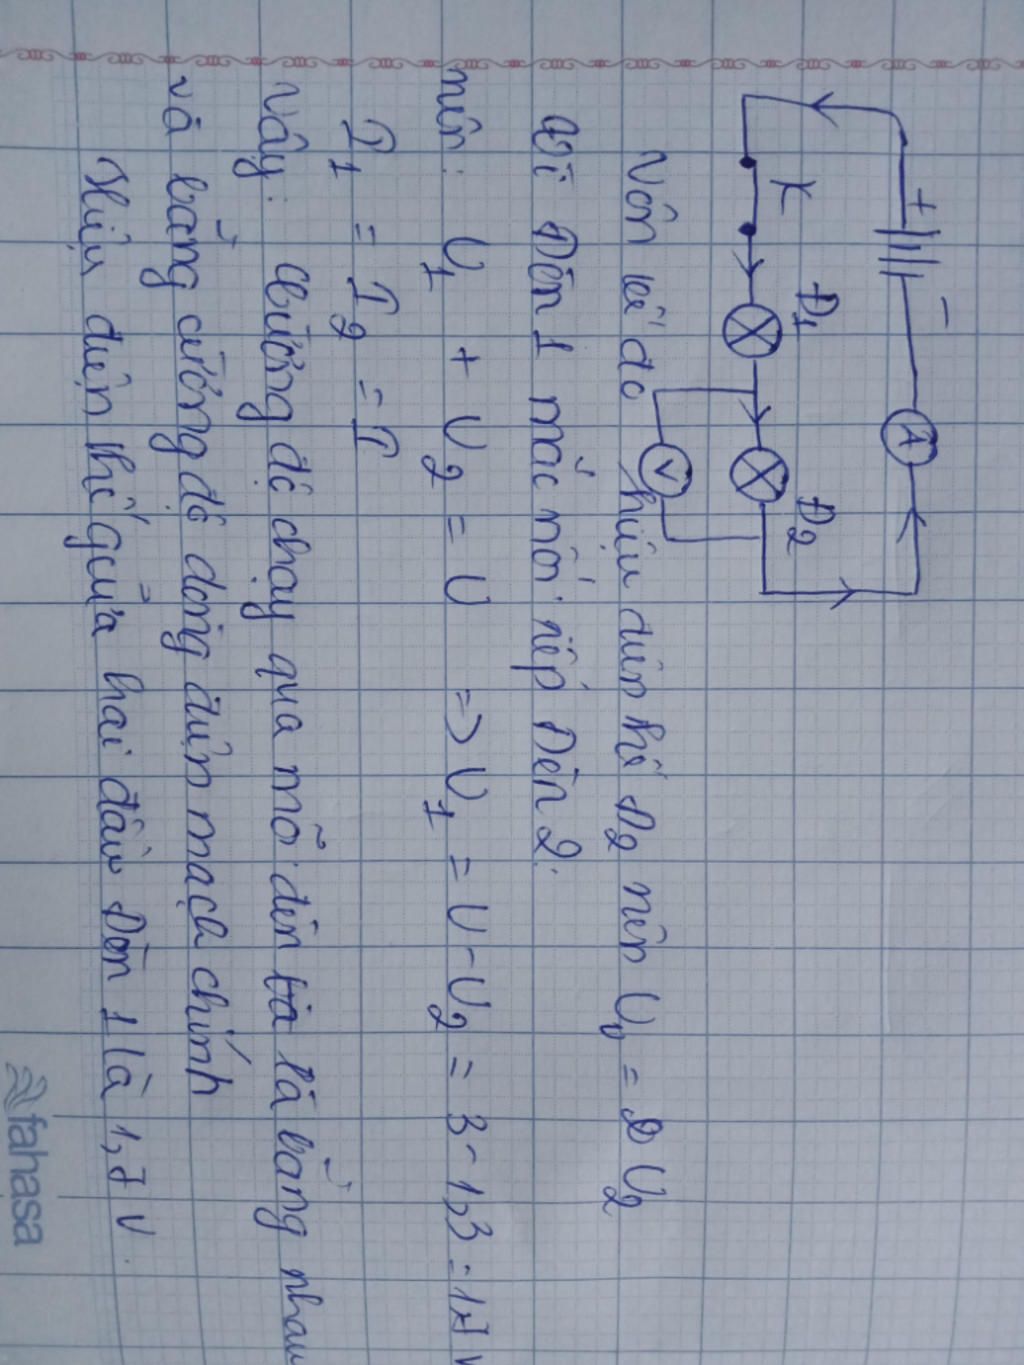 + -
A
K
Đ1
Đ2
V
Vôn kế đo hiệu điện thế Đ2 nên
Vì Đèn 1 mắc nối tiếp Đèn 2.
nên: U1 + U2 = U => U1 = U - U2 = 3 - 1,3 = 1,7 V
I1 = I2 = I
Vậy: Cường độ chạy qua mỗi đèn là bằng nhau
và bằng cường độ dòng điện mạch chính
Hiệu điện thế giữa hai đầu Đèn 1 là 1,7 V.
fahasa